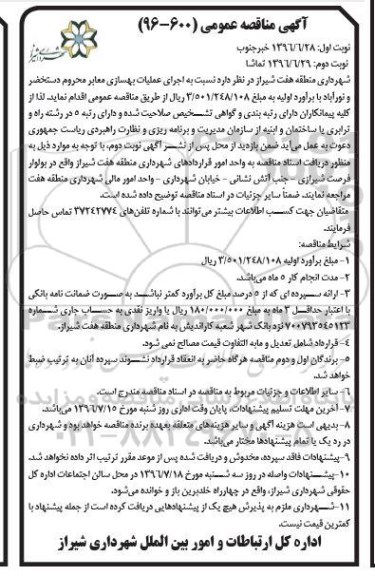 آگهی مناقصه عمومی (۶۰۰-۹۶)
نوبت اول: ۱۳۹۶/۶/۲۸ خبرجنوب
نوبت دوم: ۱۳۹۶/۶/۲۹ تماشا
شهرداری منطقه هفت شیراز در نظر دارد نسبت به اجرای عملیات بهسازی معابر محروم دستخضر
و نورآباد با برآورد اولیه به مبلغ ۳/۵۰۱/۲۴۸/۱۰۸ ریال از طریق مناقصه عمومی اقدام نماید. لذا از
کلیه پیمانکاران دارای رتبه بندی و گواهی تشخیص صلاحیت شده و دارای رتبه ۵ در رشته راه و
ترابری یا ساختمان و ابنیه از سازمان مدیریت و برنامه ریزی و نظارت راهبردی ریاست جمهوری
دعوت به عمل می آید ضمن بازدید از محل پس از نشر آگهی نوبت دوم، با توجه به موارد ذیل به
منظور دریافت اسناد مناقصه به واحد امور قراردادهای شهرداری منطقه هفت شیراز واقع در بولوار
فرصت شیرازی - جنب آتش نشانی - خیابان شهرداری - واحد امور مالی شهرداری منطقه هفت
مراجعه نمایند. ضمناً سایر جزئیات در اسناد مناقصه توضیح داده شده است.
متقاضیان جهت کسب اطلاعات بیشتر می توانند با شماره تلفن های ۳۷۲۴۲۷۷۴ تماس حاصل
فرمایند.
شرایط مناقصه:
۱- مبلغ برآورد اولیه ۳/۵۰۱/۲۴۸/۱۰۸ ریال
۲- مدت انجام کار ۵ ماه می باشد.
۳- ارائه سپرده ای که از ۵ درصد مبلغ کل برآورد کمتر نباشد به صورت ضمانت نامه بانکی
با اعتبار حداقل ۳ ماه به مبلغ ۱۸۰/۰۰۰/۰۰۰ ریال یا واریز نقدی به حساب جاری شماره
۷۰۰۷۹۳۵۴۵۱۲۳ نزد بانک شهر شعبه کاراندیش به نام شهرداری منطقه هفت شیراز.
۴- قرارداد شامل تعدیل و مابه التفاوت قیمت مصالح نمی شود.
۵- برندگان اول و دوم مناقصه هرگاه حاضر به انعقاد قرارداد نشوند سپرده آنان به ترتیب ضبط
خواهد شد.
۶- سایر اطلاعات و جزئیات مربوط به مناقصه در اسناد مناقصه مندرج است.
۷- آخرین مهلت تسلیم پیشنهادات، پایان وقت اداری روز شنبه مورخ ۱۳۹۶/۷/۱۵ می باشد.
۸- بدیهی است هزینه آگهی و سایر هزینه های متعلقه بعهده برنده مناقصه خواهد بود و شهرداری
در رد یک یا تمام پیشنهادها مختار می باشد.
۹- پیشنهادات فاقد سپرده، مخدوش و دریافت شده پس از موعد مقرر ترتیب اثر داده نخواهد شد.
۱۰- پیشنهادات واصله در روز سه شنبه مورخ ۱۳۹۶/۷/۱۸ در محل سالن اجتماعات اداره کل
حقوقی شهرداری شیراز، واقع در چهارراه خلدبرین باز و خوانده می شود.
۱۱- شهرداری ملزم به پذیرش هیچ یک از پیشنهادهایی دریافت کرده است از جمله پیشنهاد با
کمترین قیمت نیست.
اداره کل ارتباطات و امور بین الملل شهرداری شیراز